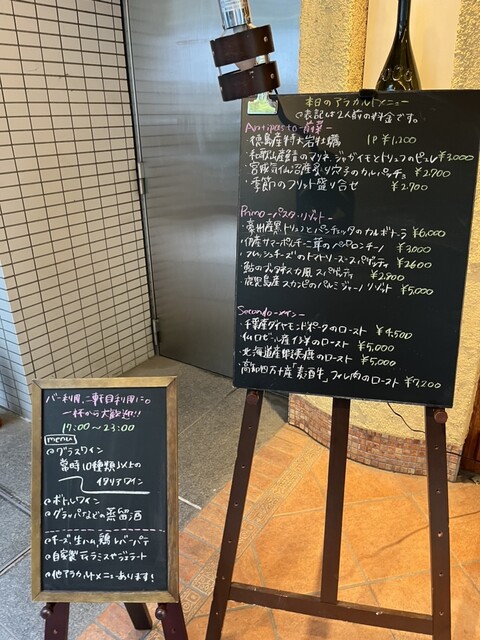 本日のアラカルトメニュー
○表記は2人前の料金です。
Antipasto -前菜-
・徳島産特大岩牡蠣 1P ¥1,200
・和歌山産鯖のマリネ、ジャガイモとトリュフのピュレ ¥3000
・宮城気仙沼産炙り穴子のカルパッチョ ¥2,700
・季節のフリット盛り合せ ¥2,700
Primo -パスタ・リゾット-
・豪州産黒トリュフとパンチェッタのカルボナーラ ¥6,000
・伊産サマーポルチーニ茸のペペロンチーノ ¥3000
・フレッシュチーズのトマトソース・スパゲッティ ¥2600
・鮎のプッタネスカ風スパゲッティ ¥2,800
・鹿児島産スカンピのパルミジャーノリゾット ¥5,000
Secondo -メイン-
・千葉産ダイヤモンドポークのロースト ¥4,500
・仏ロゼール産仔羊のロースト ¥5,000
・北海道産蝦夷鹿のロースト ¥5,000
・高知四万十産「麦酒牛」フィレ肉のロースト ¥7,200
バー利用、二軒目利用に◎
一杯から大歓迎!!
17:00〜23:00
menu
◎グラスワイン
常時10種類以上の
イタリアワイン
◎ボトルワイン
◎グラッパなどの蒸留酒
◎チーズ、生ハム、鶏レバーパテ
◎自家製ティラミスやジェラート
◎他アラカルトメニューあります!